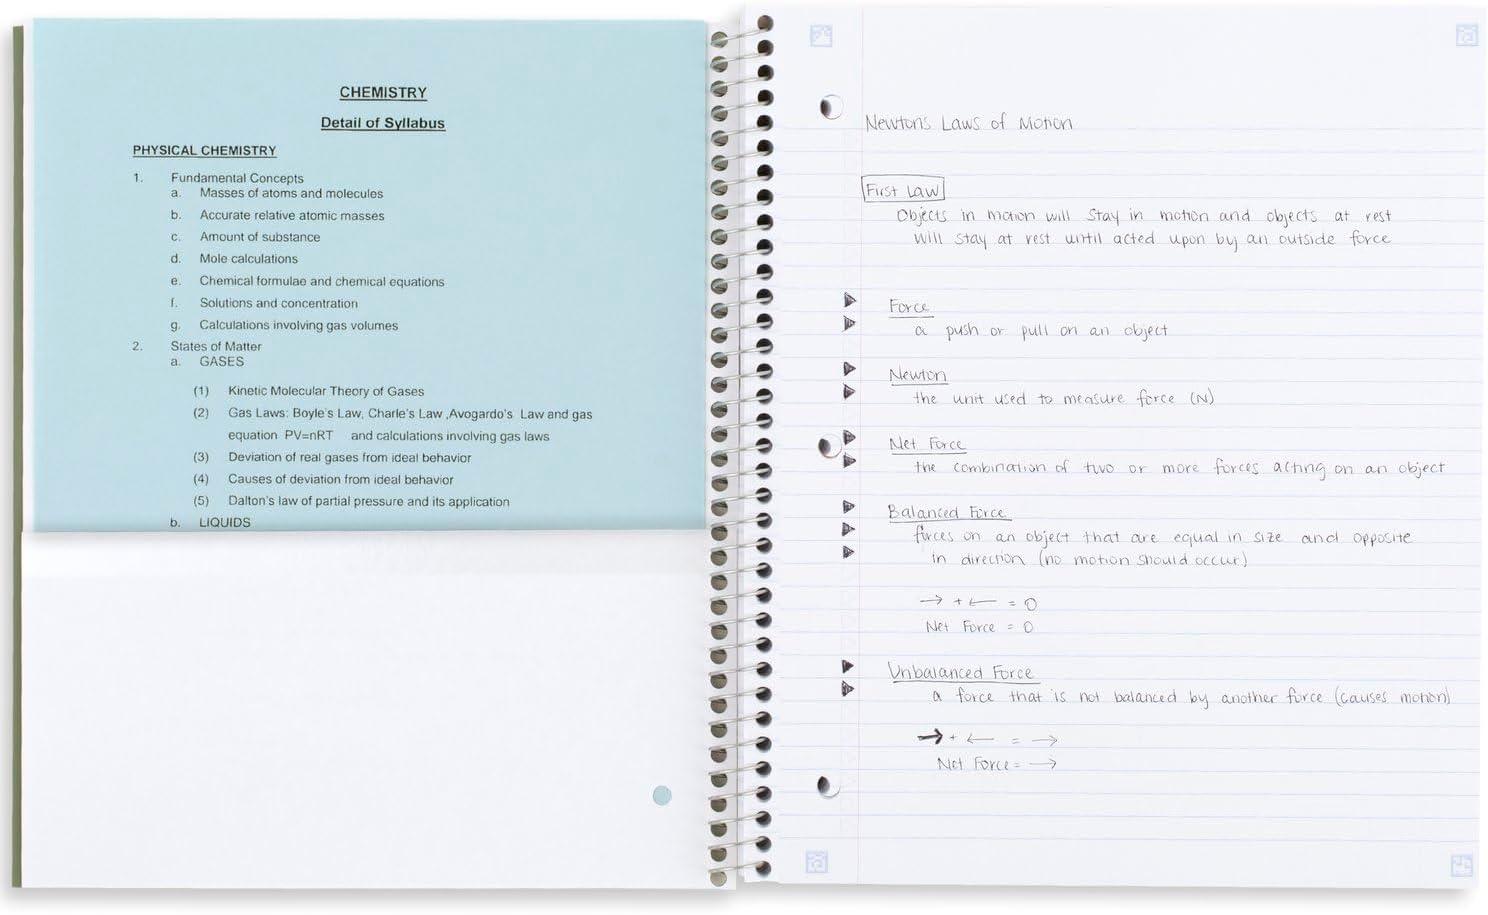 CHEMISTRY
Detail of Syllabus
PHYSICAL CHEMISTRY
1. Fundamental Concepts
a. Masses of atoms and molecules
b. Accurate relative atomic masses
c. Amount of substance
d. Mole calculations
e. Chemical formulae and chemical equations
f. Solutions and concentration
g. Calculations involving gas volumes
2. States of Matter
a. GASES
(1) Kinetic Molecular Theory of Gases
(2) Gas Laws: Boyle's Law, Charle's Law ,Avogardo's Law and gas
equation PV=nRT and calculations involving gas laws
(3) Deviation of real gases from ideal behavior
(4) Causes of deviation from ideal behavior
(5) Dalton's law of partial pressure and its application
b. LIQUIDS
Newtons Laws of Motion
First Law
Objects in motion will stay in motion and objects at rest
will stay at rest until acted upon by an outside force
Force
a push or pull on an object
Newton
the unit used to measure force (N)
Net Force
the combination of two or more forces acting on an object
Balanced Force
forces on an object that are equal in size and opposite
in direction (no motion should occur)
→ + ← = 0
Net Force = 0
Unbalanced Force
a force that is not balanced by another force (causes motion)
→ + ← = →
Net Force = →